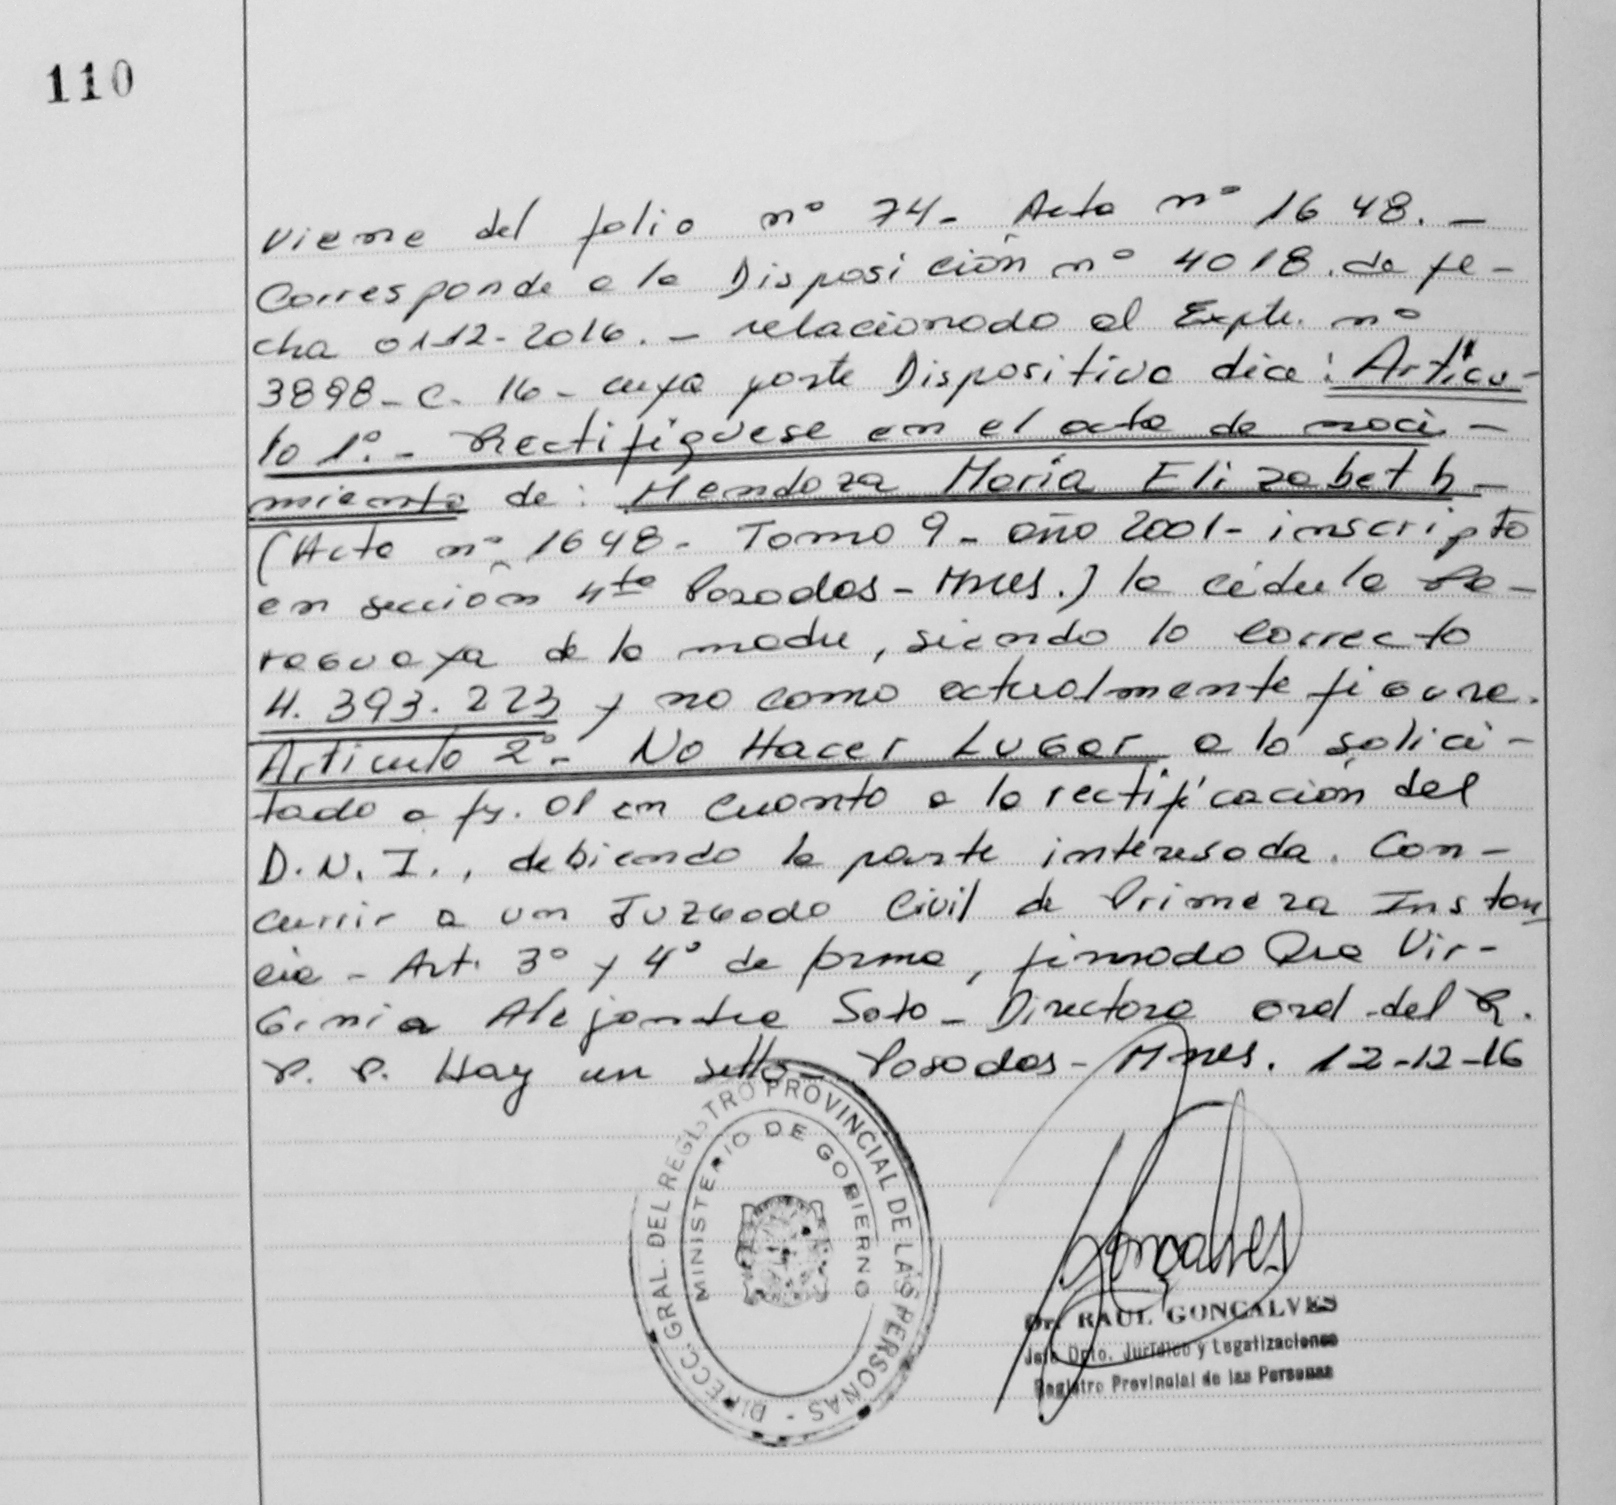 110
Viene del folio nº 74- Acta nº 1648.-
Corresponde a la Disposición nº 4018. de fe-
cha 01-12-2016.- relacionado al Expte. nº
3898-C-16- cuya parte Dispositiva dice: Artícu-
lo 1º.- Rectifíquese en el acta de naci-
miento de: Mendoza María Elizabeth-
(Acta nº 1648- Tomo 9- año 2001- inscripto
en sección 4ta Posadas-Mnes.) la cédula Pa-
raguaya de la madre, siendo lo correcto
4.393.223 y no como actualmente figura.
Articulo 2º- No Hacer Lugar a lo solici-
tado a fs. 01 en cuanto a la rectificación del
D.N.I., debiendo la parte interesada. Con-
currir a un Juzgado Civil de Primera Instan
cia - Art. 3º y 4º de forma, firmado Dra Vir-
ginia Alejandra Soto- Directora Gral del R.
P. P. Hay un sello- Posadas-Mnes. 12-12-16
DIRECC. GRAL. DEL REGISTRO PROVINCIAL DE LAS PERSONAS -
MINISTERIO DE GOBIERNO
Gonçalves
Dr. RAUL GONCALVES
Jefe Dpto. Jurídico y Legalizaciones
Registro Provincial de las Personas